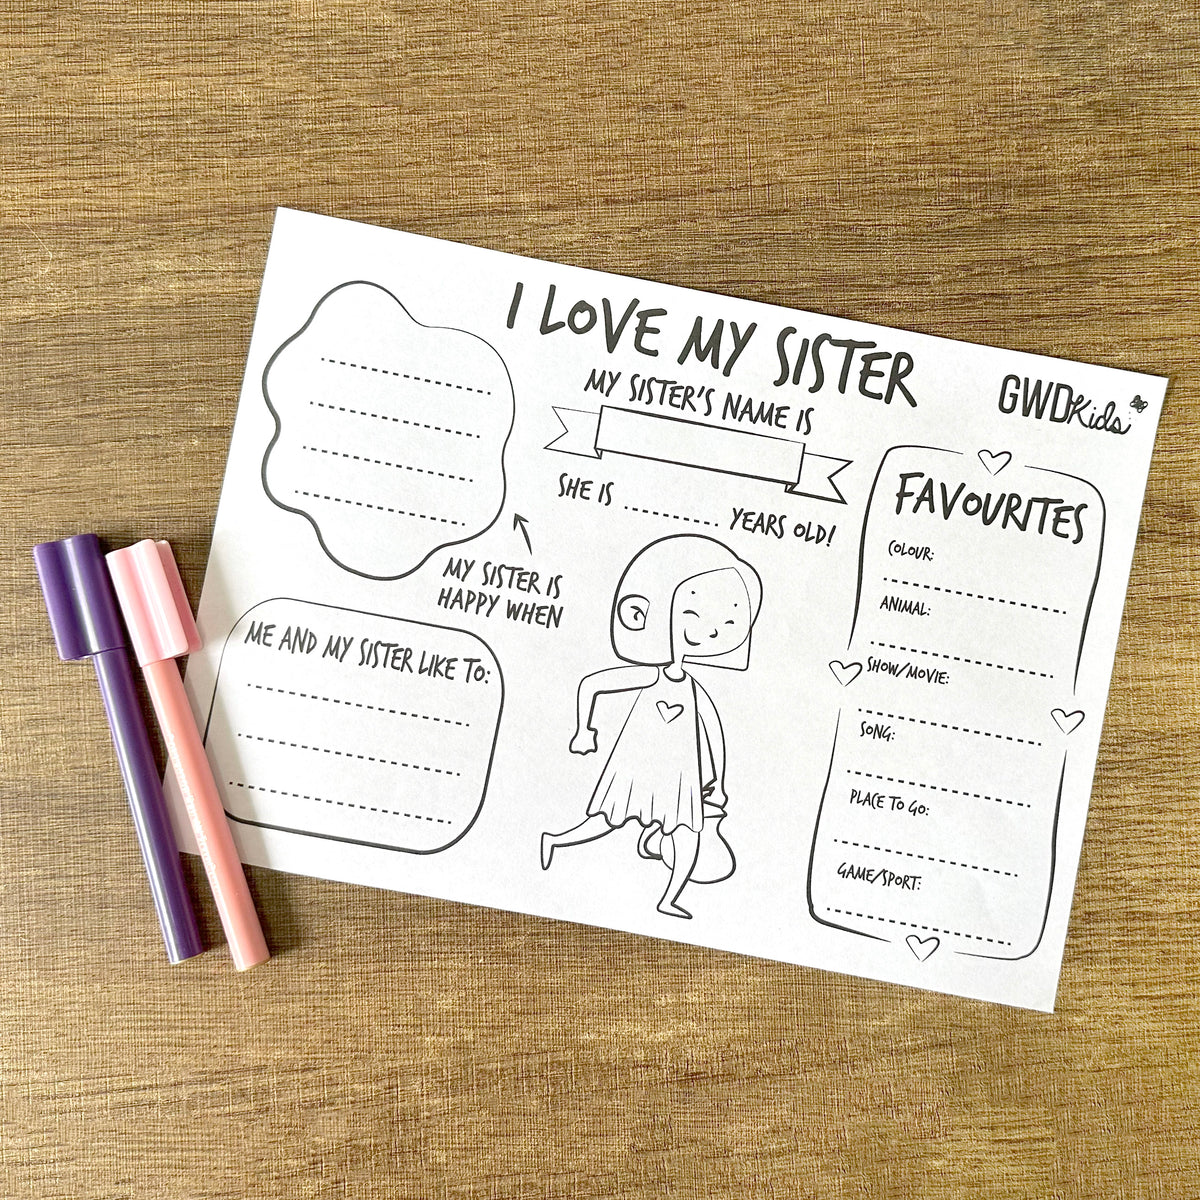 I LOVE MY SISTER
MY SISTER'S NAME IS
SHE IS ............ YEARS OLD!
MY SISTER IS
HAPPY WHEN
ME AND MY SISTER LIKE TO:
GWDKids
FAVOURITES
COLOUR:
ANIMAL:
SHOW/MOVIE:
SONG:
PLACE TO GO:
GAME/SPORT: